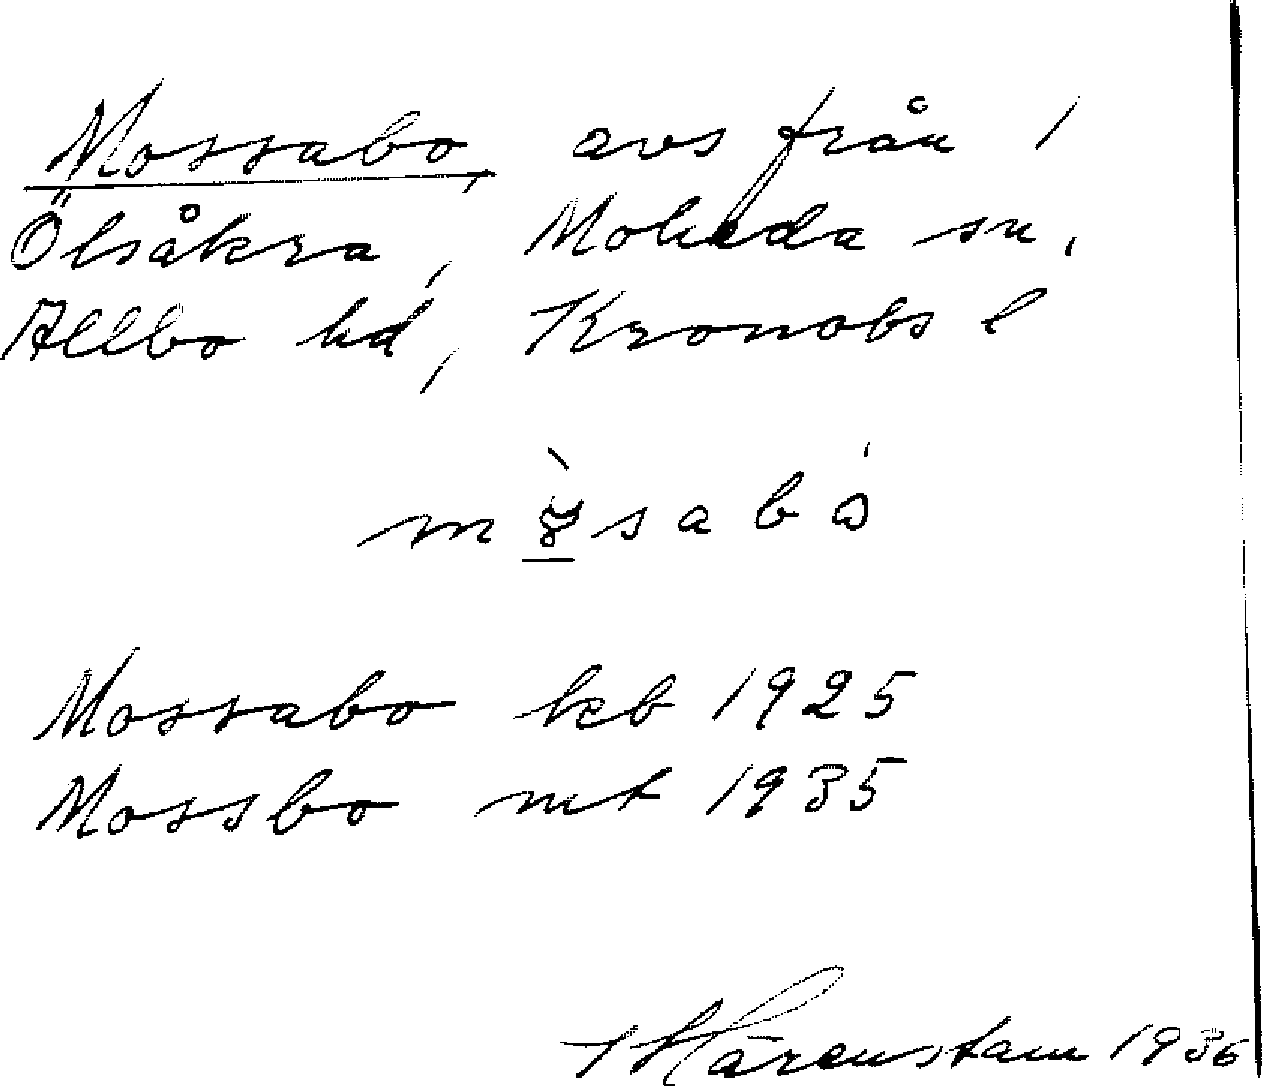 Mossabo, avs från 1
Ölsåkra, Moheda sn.
Allbo hd, Kronobs l
sabå
Mossabo kb 1925
Mossbo mt 1935
Härenstam 1936